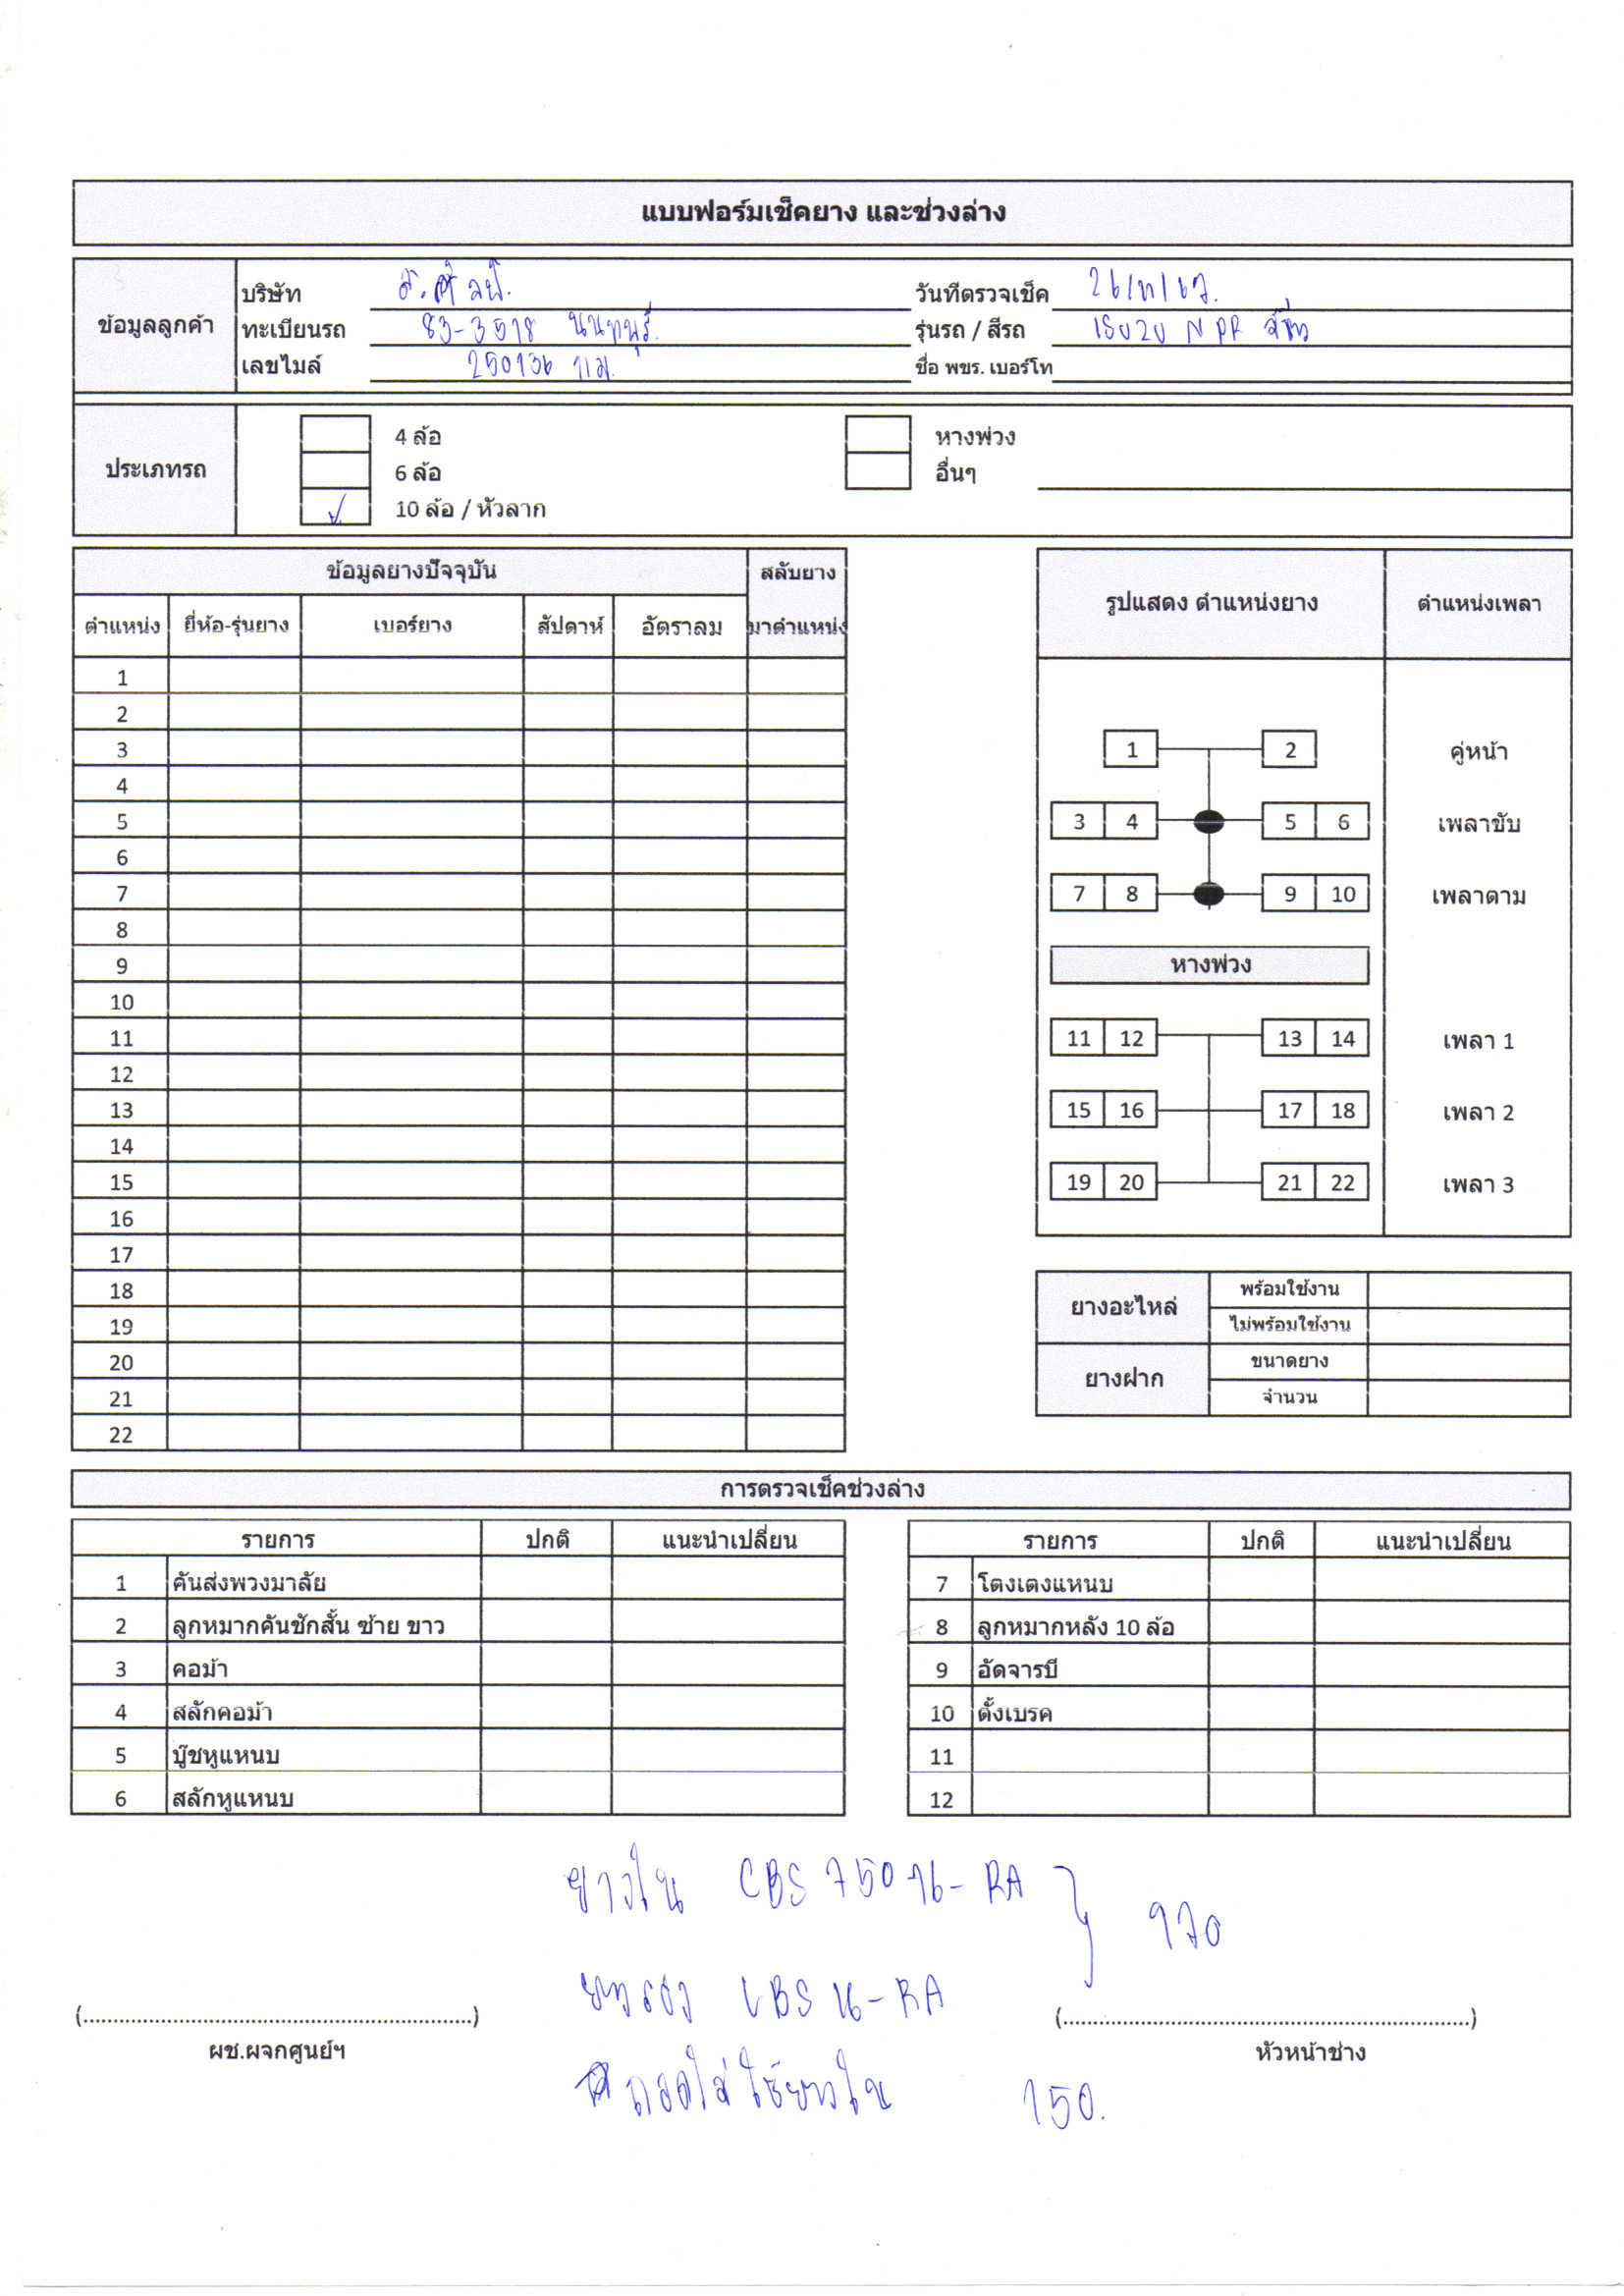 แบบฟอร์มเช็คยาง และช่วงล่าง
ข้อมูลลูกค้า
บริษัท
วันที่ตรวจเช็ค
ทะเบียนรถ 83-3518 นนทบุรี
รุ่นรถ / สีรถ NPR
เลขไมล์ 250136 กม.
ชื่อ พขร. เบอร์โท
ประเภทรถ
4 ล้อ
6 ล้อ
10 ล้อ / หัวลาก
หางพ่วง
อื่นๆ
ข้อมูลยางปัจจุบัน สลับยาง
ตำแหน่ง ยี่ห้อ-รุ่นยาง เบอร์ยาง สัปดาห์ อัตราลม มาตำแหน่ง
1
2
3
4
5
6
7
8
9
10
11
12
13
14
15
16
17
18
19
20
21
22
รูปแสดง ตำแหน่งยาง ตำแหน่งเพลา
1 2 คู่หน้า
3 4 5 6 เพลาขับ
7 8 9 10 เพลาตาม
หางพ่วง
11 12 13 14 เพลา 1
15 16 17 18 เพลา 2
19 20 21 22 เพลา 3
ยางอะไหล่ พร้อมใช้งาน
ไม่พร้อมใช้งาน
ยางฝาก ขนาดยาง
จำนวน
การตรวจเช็คช่วงล่าง
รายการ ปกติ แนะนำเปลี่ยน
1 คันส่งพวงมาลัย
2 ลูกหมากคันชักสั้น ซ้าย ขาว
3 คอม้า
4 สลักคอม้า
5 บู๊ชหูแหนบ
6 สลักหูแหนบ
รายการ ปกติ แนะนำเปลี่ยน
7 โตงเตงแหนบ
8 ลูกหมากหลัง 10 ล้อ
9 อัดจารบี
10 ตั้งเบรค
11
12
ยางใน CBS 75016-RA
970
ยางรอง CBS 16-RA
ถอดใส่ใช้ยางใน 150.
(..........) (..........)
ผช.ผจกศูนย์ฯ หัวหน้าช่าง